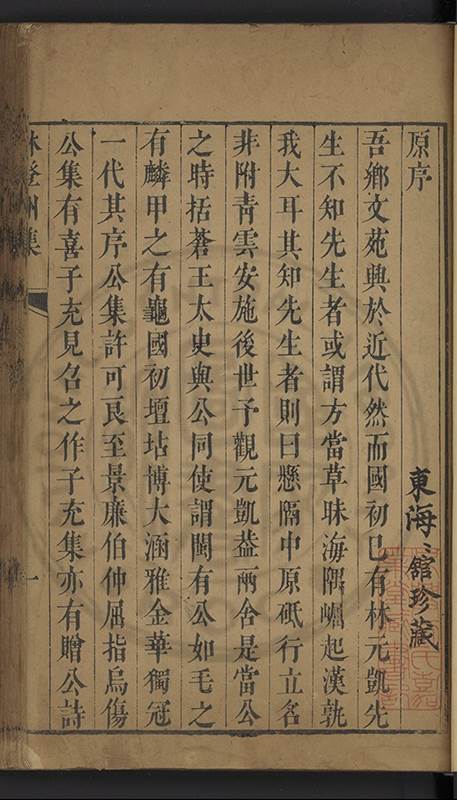 原序
東海〻舘珍藏
吾鄉文苑興於近代然而國初已有林元凱先
生不知先生者或謂方當草昧海隅崛起漢孰
我大耳其知先生者則曰懸隔中原砥行立名
非附青雲安施後世予觀元凱葢兩舍是當公
之時括蒼王太史與公同使謂閩有公如毛之
有麟甲之有龜國初壇坫博大涵雅金華獨冠
一代其序公集許可良至景廉伯仲屈指烏傷
公集有喜子充見召之作子充集亦有贈公詩
林登州集
一